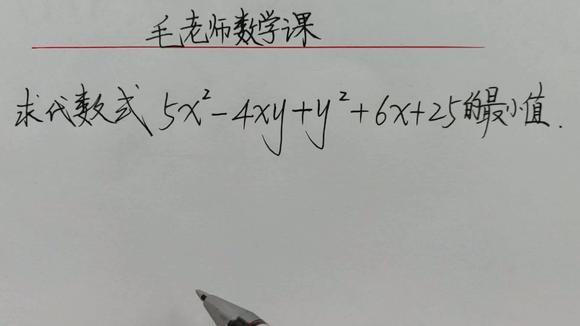 毛老师数学课
求代数式 5x²-4xy+y²+6x+25的最小值.